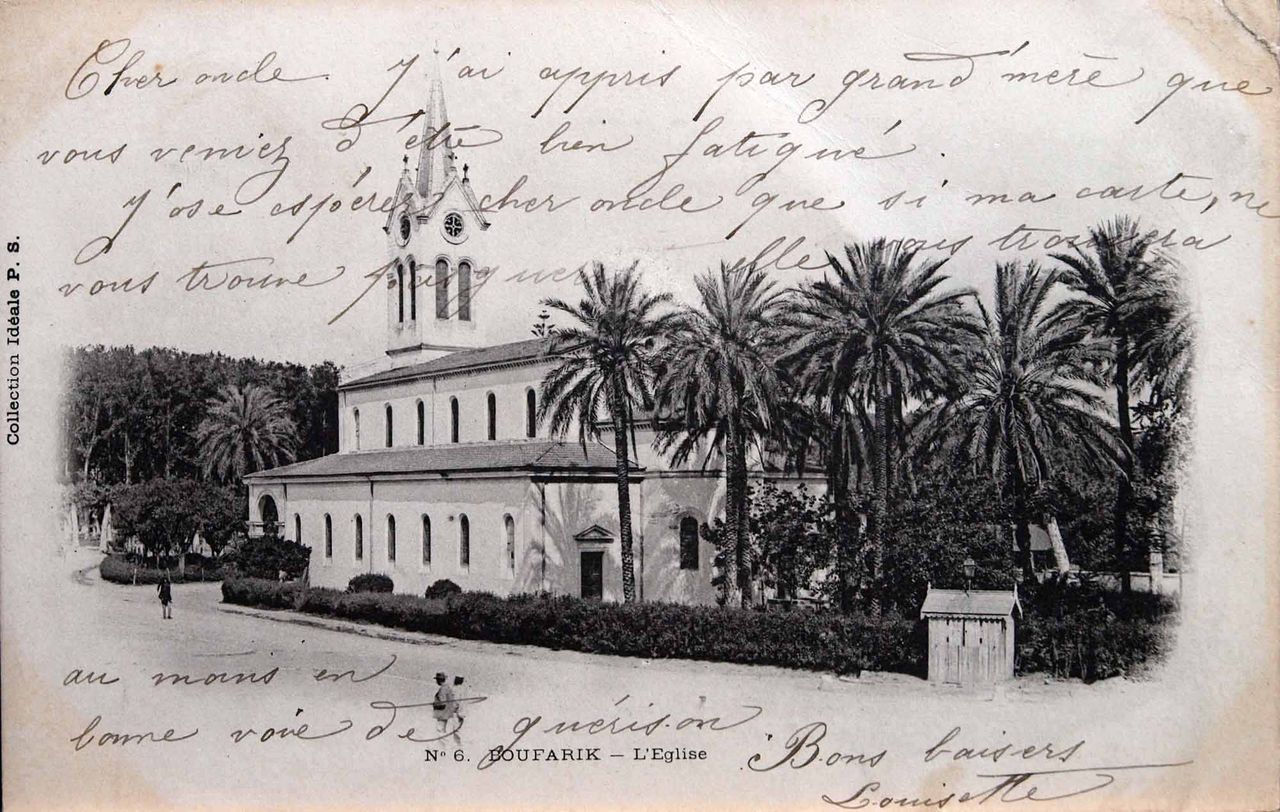 Cher oncle. J'ai appris par grand'mère que
vous veniez d'être bien fatigué.
J'ose espérer cher oncle que si ma carte, ne
vous trouve pas guéri elle vous trouvera
au moins en
bonne voie de guérison
Bons baisers
Louisette
Nº 6. BOUFARIK — L'Eglise
Collection Idéale P. S.